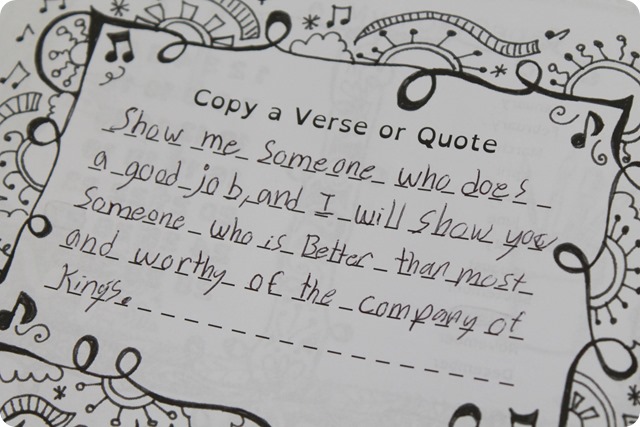 Copy a Verse or Quote
Show me someone who does
a good job, and I will show you
someone who is Better than most
and worthy of the company of
Kings.